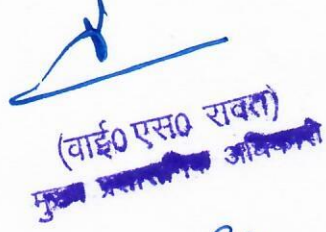 (वाई0 एस0 रावत)
मुख्य प्रशासनिक अधिकारी